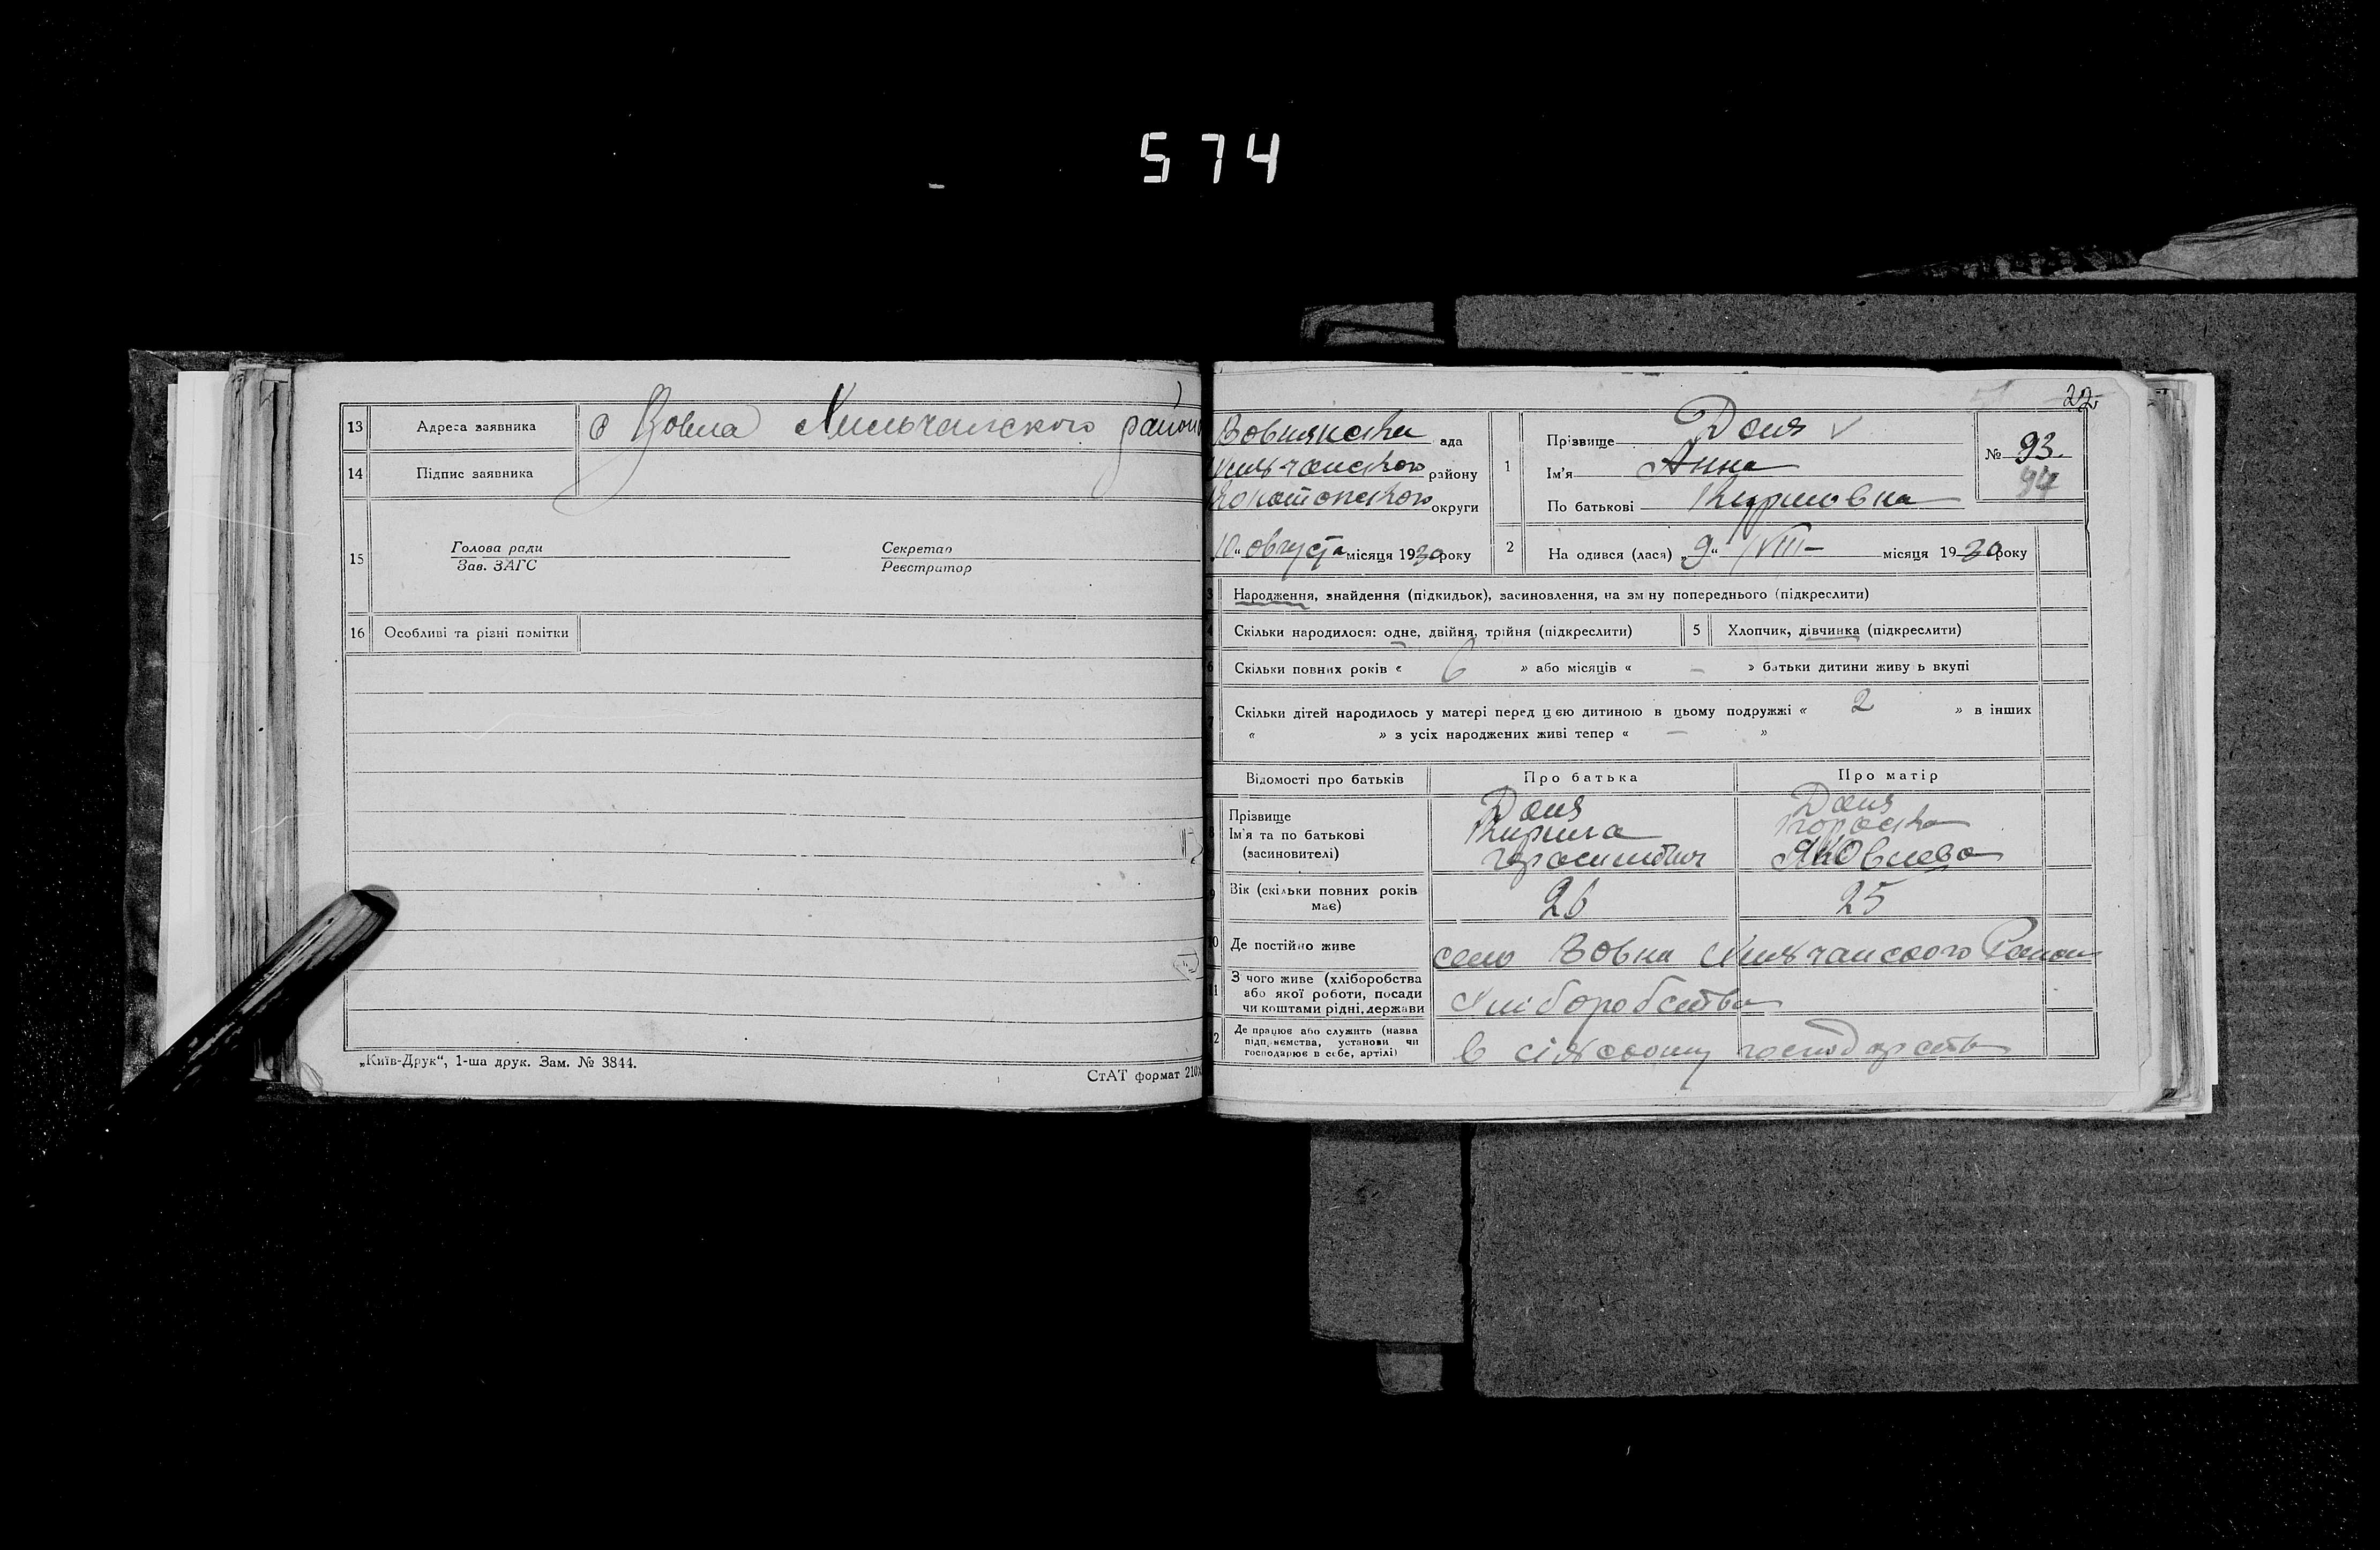 574
13 Адреса заявника с Вовна Хильчанского району
14 Підпис заявника
15 Голова ради Секретар
Зав. ЗАГС Реєстратор
16 Особливі та різні помітки
„Київ-Друк“, 1-ша друк. Зам. № 3844.
СтАТ формат 210
22
Вовнянська ада
Хильчанского району
Конотопского округи
10 “ августа місяця 1930 року
1 Прізвище Доня
Ім’я Анна
По батькові Кириловна
№ 93.
94
2 На одився (лася) „ 9 “ VIII – місяця 1930 року
3 Народження, знайдення (підкидьок), засиновлення, на зміну попереднього (підкреслити)
Скільки народилося: одне, двійня, трійня (підкреслити) 5 Хлопчик, дівчинка (підкреслити)
6 Скільки повних років « 6 » або місяців « – » батьки дитини живуть вкупі
7 Скільки дітей народилось у матері перед цією дитиною в цьому подружжі « 2 » в інших
« » з усіх народжених живі тепер « – »
Відомості про батьків Про батька Про матір
8 Прізвище Доня Доня
Ім’я та по батькові Кирила
(засиновителі) Яковлева
9 Вік (скільки повних років має) 26 25
10 Де постійно живе село Вовна Хильчанского Район
11 З чого живе (хліборобства
або якої роботи, посади
чи коштами рідні, держави Хліборобства
12 Де працює або служить (назва
підприємства, установи чи
господарює в себе, артілі) в сільскому господарстві